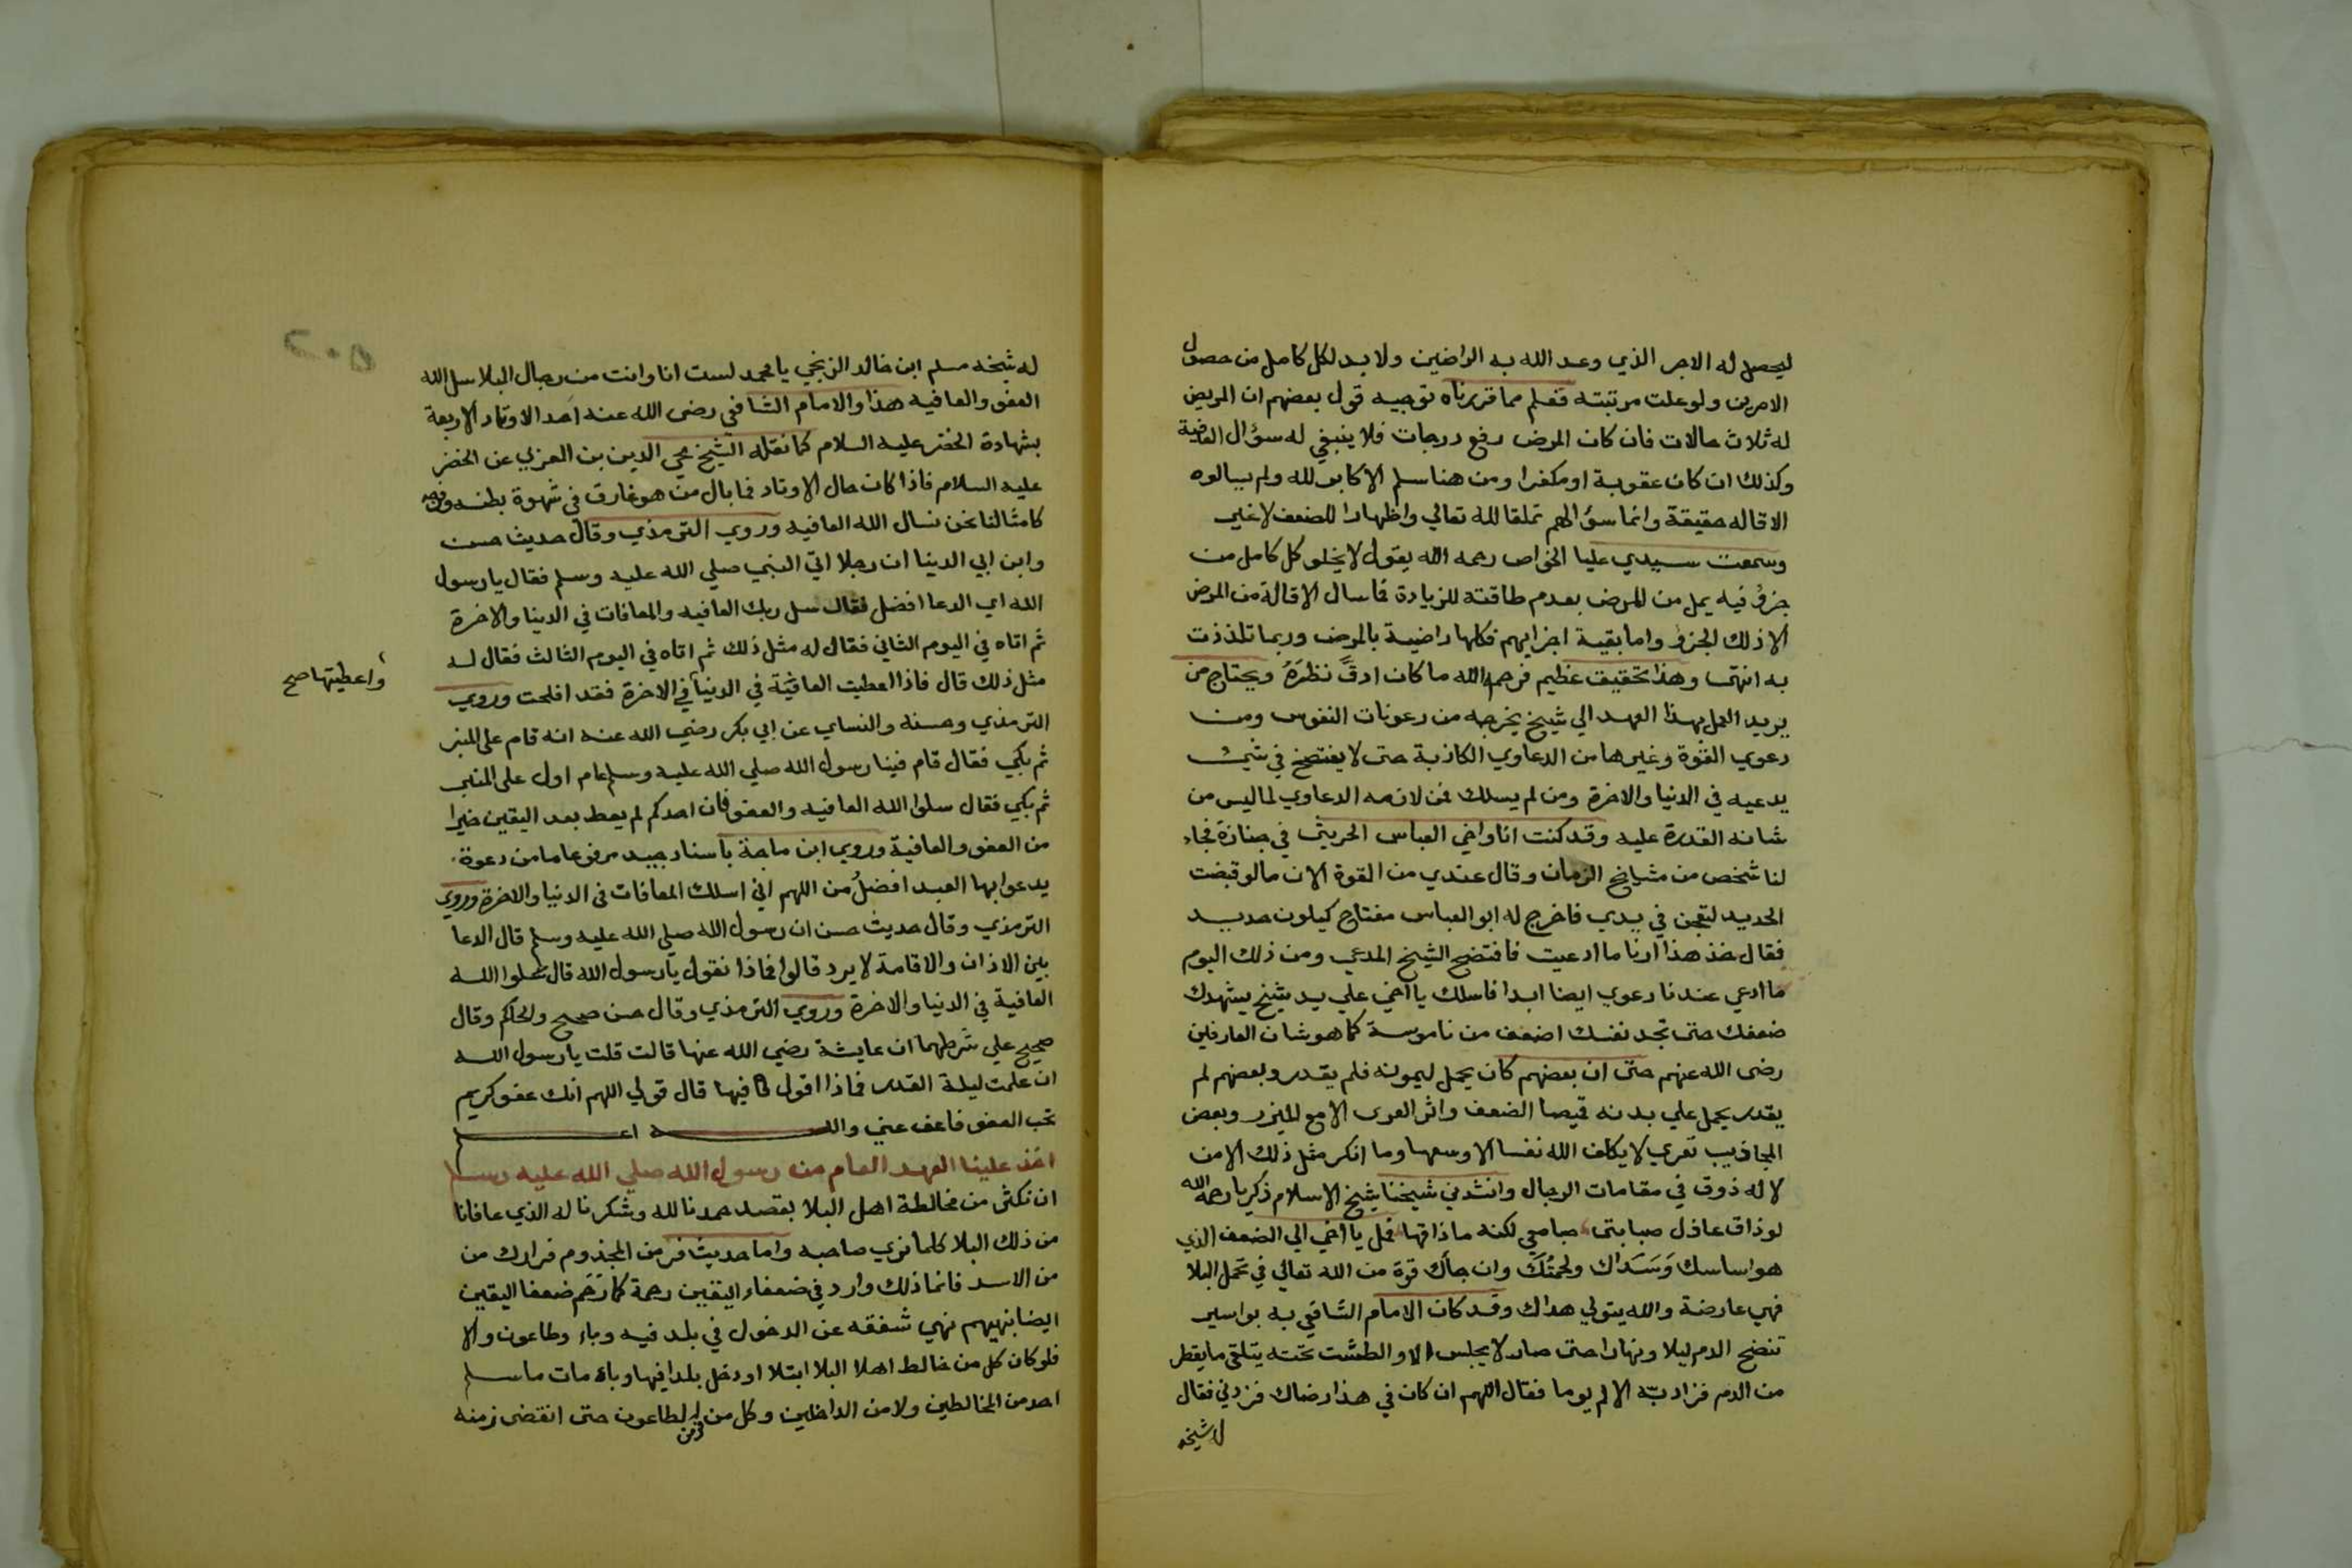 ليحصل له الاجر الذي وعد الله به الراضين ولا بد لكل كامل من حصول
الامرين ولو علت مرتبته فعلم مما قررناه توجيه قول بعضهم ان المريض
له ثلاث حالات فان كان المرض رفع درجات فلا ينبغي له سؤال العافية
وكذلك ان كان عقوبة او مكفرا ومن هنا سلم الاكابر لله ولم يسالوه
الاقاله حقيقة وانما سؤالهم تملقا لله تعالي واظهارا للضعف لا غير
وسمعت سيدي عليا الخواص رحمه الله يقول لا يخلو كل كامل من
جزؤ فيه يمل من المرض بعدم طاقته للزيادة فاسال الاقالة من المرض
الا ذلك الجزؤ واما بقية اجزايهم فكلها راضية بالمرض وربما تلذذت
به انتهى وهذا تحقيق عظيم فرحمه الله ما كان ادق نظره ويحتاج من
يريد العمل بهذا العهد الي شيخ يخرجه من رعونات النفوس ومن
دعوي القوة وغيرها من الدعاوي الكاذبة حتى لا يفتضح في شيئ
يدعيه في الدنيا والاخرة ومن لم يسلك فمن لازمه الدعاوي لما ليس من
شانه القدرة عليه وقد كنت انا واخي العباس الحريثي في جنازة فجاء
لنا شخص من مشايخ الزمان وقال عندي من القوة الان ما لو قبضت
الحديد لتعجن في يدي فاخرج له ابو العباس مفتاح كيلون حديد
فقال خذ هذا ارنا ما ادعيت فافتضح الشيخ المدعي ومن ذلك اليوم
ما ادعي عندنا دعوي ايضا ابدا فاسلك يا اخي علي يد شيخ يشهدك
ضعفك حتى تجد نفسك اضعف من ناموسة كما هو شان العارفين
رضى الله عنهم حتى ان بعضهم كان يحمل ليمونه فلم يقدر وبعضهم لم
يقدر يحمل علي بدنه قميصا الضعف واثر العرى الا مع الميزر وبعض
المجاذيب تعري لا يكلف الله نفسا الا وسعها وما انكر مثل ذلك الا من
لا له ذوق في مقامات الرجال وانشدني شيخنا شيخ الاسلام زكريا رحمه الله
لو ذاق عاذل صبابتى صبا معي لكنه ما ذاقها فمل يا اخي الي الضعف الذي
هو اساسك وسداك ولحمتك وان جاك قوة من الله تعالي في تحمل البلا
فهي عارضة والله يتولي هداك وقد كان الامام الشافعي به بواسير
تنضح الدم ليلا ونهارا حتى صار لا يجلس الا والطشت تحته يتلقى ما يقطر
من الدم فزاد به الالم يوما فقال اللهم ان كان في هذا رضاك فزدني فقال
له شيخه
له شيخه مسلم ابن خالد الزنجي يا محمد لست انا وانت من رجال البلا سل الله
العفو والعافيه هذا والامام الشافعي رضى الله عنه احد الاوتاد الاربعة
بشهادة الخضر عليه السلام كما نقله الشيخ محي الدين بن العربي عن الخضر
عليه السلام فاذا كان حال الاوتاد فما بال من هو غارق في شهوة بطنه وفرجه
كامثالنا نحن نسال الله العافيه وروي الترمذي وقال حديث حسن
وابن ابي الدينا ان رجلا اتي النبي صلي الله عليه وسلم فقال يا رسول
الله اي الدعا افضل فقال سل ربك العافيه والمعافات في الدينا والاخرة
ثم اتاه في اليوم الثاني فقال له مثل ذلك ثم اتاه في اليوم الثالث فقال له
مثل ذلك قال فاذا اعطيت العافية في الدنيا في الاخرة فقد افلحت وروي
واعطيتها صح
الترمذي وحسنه والنساي عن ابي بكر رضي الله عنه انه قام على المنبر
ثم بكي فقال قام فينا رسول الله صلي الله عليه وسلم عام اول على المنبر
ثم بكي فقال سلوا الله العافيه والعفو فان احدكم لم يعط بعد اليقين خيرا
من العفو والعافية وروي ابن ماجة باسناد جيد مرفوعا ما من دعوة
يدعوا بها العبد افضل من اللهم اني اسلك المعافات في الدنيا والاخرة وروي
الترمذي وقال حديث حسن ان رسول الله صلي الله عليه وسلم قال الدعا
بين الاذان والاقامة لا يرد قالوا فماذا نقول يا رسول الله قال سلوا الله
العافية في الدنيا والاخرة وروي الترمذي وقال حسن صحيح والحاكم وقال
صحيح علي شرطهما ان عايشة رضي الله عنها قالت قلت يا رسول الله
ان علمت ليلة القدر فماذا اقول فيها قال قولي اللهم انك عفو كريم
تحب العفو فاعف عني والله اعلم
اخذ علينا العهد العام من رسول الله صلي الله عليه وسلم
ان نكثر من مخالطة اهل البلا بقصد حمدنا لله وشكرنا له الذي عافانا
من ذلك البلا كلما نري صاحبه واما حديث فر من المجذوم فرارك من
من الاسد فانما ذلك وارد في ضعفاء اليقين رحمة كما رحم ضعفا اليقين
ايضا بنهيهم نهي شفقه عن الدخول في بلد فيه وباء وطاعون والا
فلو كان كل من خالط اهلا البلا ابتلا او دخل بلدا فيها وباء مات ما سلم
احد من المخالطين ولا من الداخلين وكل من فر من الطاعون حتى انقضى زمنه